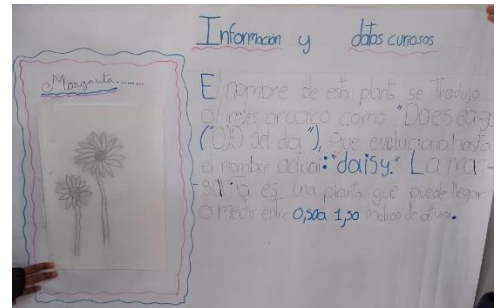 Información y datos curiosos
Margarita........
El nombre de esta planta se tradujo
al inglés arcaico como "Daes eag
("Ojo del día"), que evoluciono hasta
el nombre actual: "daisy." La ma-
-garita es una planta que puede llegar
a medir entre 0,50a 1,50 metros de altura.